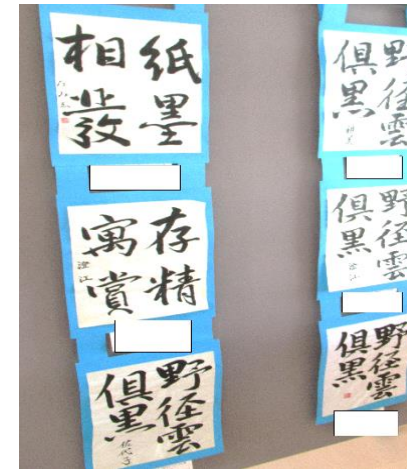 紙墨
相發
存精
寓賞
澄江
野径雲
倶黒
佐代子
野径雲
倶黒
野径雲
倶黒
野径雲
倶黒